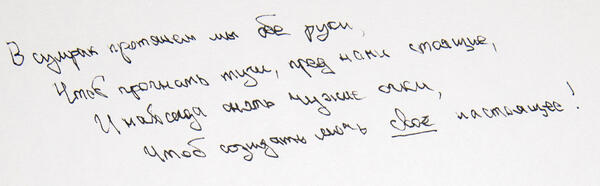 В сумрак протянем мы обе руки,
Чтоб прогнать тучи, пред нами стоящие,
И навсегда снять чужие очки,
Чтоб созидать мочь своё настоящее!